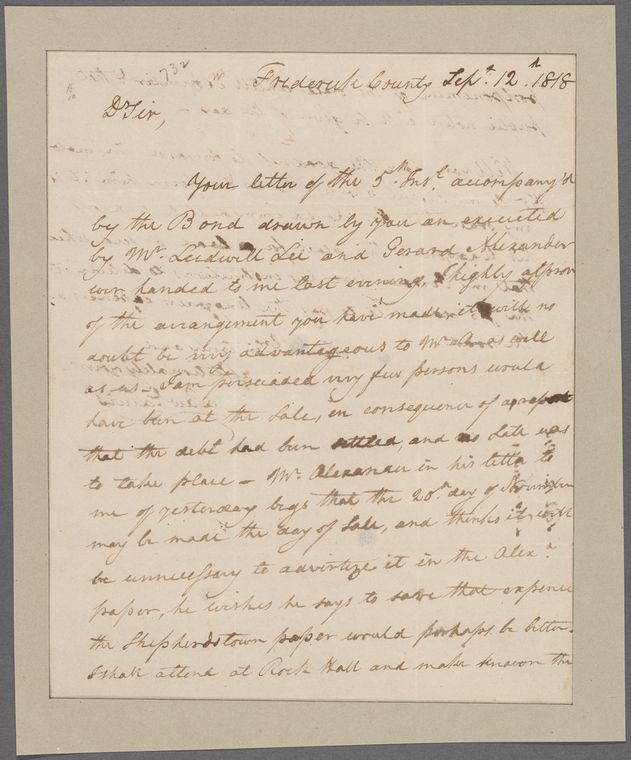 732
Frederick County Sepr. 12th. 1818
Dr Sir,
Your letter of the 5th Inst. accompany'd
by the Bond drawn by you an executed
by Mr. Ludwell Lee and Gerard Alexander
wer handed to me last evening, I highly approve
of the arrangement you have made, it will no
doubt be very advantageous to Mr A. as well
as us - I am persuaded very few persons would
have been at the Sale, in consequence of a report
that the debt had been settled, and no Sale was
to take place - Mr. Alexander in his letter to
me of yesterday begs that the 20th day of November
may be made the day of Sale, and thinks it will
be unnecessary to advirtize it in the Alexa.
paper, he wishes he says to save that expence
the Shepherdstown paper would perhaps be better.
I shall attend at Rock Hall and make known the